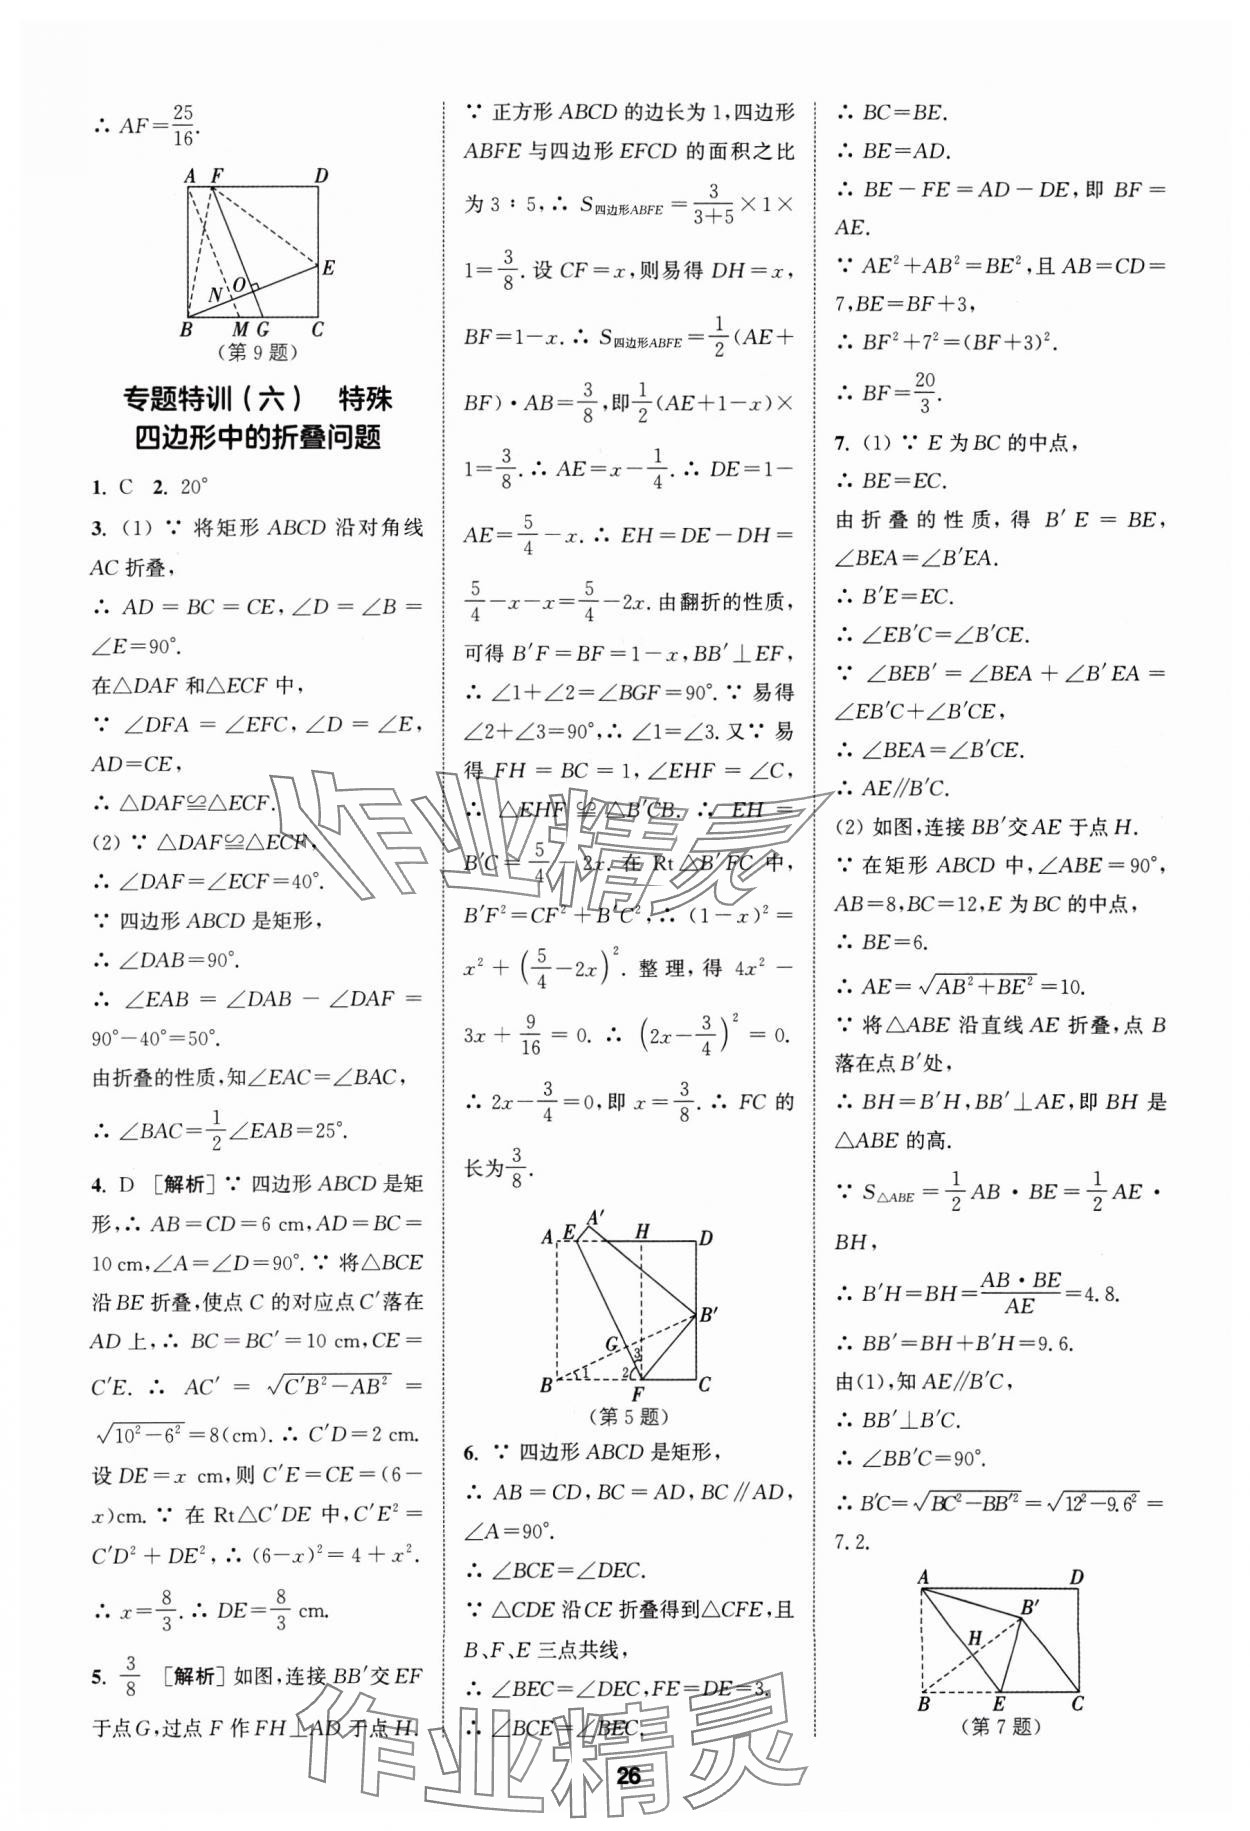 ∴ AF=25/16.
A F D
E
O
N
B M G C
(第9题)
专题特训(六) 特殊
四边形中的折叠问题
1. C 2. 20°
3. (1) ∵ 将矩形 ABCD 沿对角线
AC 折叠,
∴ AD = BC = CE, ∠D = ∠B =
∠E=90°.
在△DAF 和△ECF 中,
∵ ∠DFA = ∠EFC, ∠D = ∠E,
AD=CE,
∴ △DAF≌△ECF.
(2) ∵ △DAF≌△ECF,
∴ ∠DAF=∠ECF=40°.
∵ 四边形 ABCD 是矩形,
∴ ∠DAB=90°.
∴ ∠EAB = ∠DAB - ∠DAF =
90°-40°=50°.
由折叠的性质,知∠EAC=∠BAC,
∴ ∠BAC=1/2∠EAB=25°.
4. D [解析] ∵ 四边形 ABCD 是矩
形,∴ AB=CD=6 cm,AD=BC=
10 cm,∠A=∠D=90°. ∵ 将△BCE
沿 BE 折叠,使点 C 的对应点 C′落在
AD 上,∴ BC=BC′=10 cm,CE=
C′E. ∴ AC′ = √(C′B²-AB²) =
√(10²-6²)=8(cm). ∴ C′D=2 cm.
设 DE=x cm,则 C′E=CE=(6-
x)cm. ∵ 在 Rt△C′DE 中,C′E²=
C′D²+DE²,∴ (6-x)²=4+x².
∴ x=8/3. ∴ DE=8/3 cm.
5. 3/8 [解析] 如图,连接 BB′交 EF
于点G,过点 F 作 FH⊥AD 于点 H.
∵ 正方形 ABCD 的边长为 1,四边形
ABFE 与四边形 EFCD 的面积之比
为 3∶5,∴ S四边形ABFE=3/(3+5)×1×
1=3/8. 设 CF=x,则易得 DH=x,
BF=1-x. ∴ S四边形ABFE=1/2(AE+
BF)·AB=3/8,即1/2(AE+1-x)×
1=3/8. ∴ AE=x-1/4. ∴ DE=1-
AE=5/4-x. ∴ EH=DE-DH=
5/4-x-x=5/4-2x. 由翻折的性质,
可得 B′F=BF=1-x,BB′⊥EF,
∴ ∠1+∠2=∠BGF=90°. ∵ 易得
∠2+∠3=90°,∴ ∠1=∠3. 又∵ 易
得 FH = BC = 1, ∠EHF = ∠C,
∴ △EHF ≌ △B′CB. ∴ EH =
B′C=5/4-2x. 在 Rt△B′FC 中,
B′F²=CF²+B′C²,∴ (1-x)²=
x²+(5/4-2x)². 整理,得 4x²-
3x+9/16=0. ∴ (2x-3/4)²=0.
∴ 2x-3/4=0,即 x=3/8. ∴ FC 的
长为3/8.
A E A′ H D
B′
G 3
B 1 2 F C
(第5题)
6. ∵ 四边形 ABCD 是矩形,
∴ AB=CD,BC=AD,BC∥AD,
∠A=90°.
∴ ∠BCE=∠DEC.
∵ △CDE 沿 CE 折叠得到△CFE,且
B、F、E 三点共线,
∴ ∠BEC=∠DEC,FE=DE=3.
∴ ∠BCE=∠BEC.
∴ BC=BE.
∴ BE=AD.
∴ BE-FE=AD-DE,即 BF=
AE.
∵ AE²+AB²=BE²,且 AB=CD=
7,BE=BF+3,
∴ BF²+7²=(BF+3)².
∴ BF=20/3.
7. (1) ∵ E 为 BC 的中点,
∴ BE=EC.
由折叠的性质,得 B′E = BE,
∠BEA=∠B′EA.
∴ B′E=EC.
∴ ∠EB′C=∠B′CE.
∵ ∠BEB′ = ∠BEA + ∠B′EA =
∠EB′C+∠B′CE,
∴ ∠BEA=∠B′CE.
∴ AE∥B′C.
(2) 如图,连接 BB′交 AE 于点 H.
∵ 在矩形 ABCD 中,∠ABE=90°,
AB=8,BC=12,E 为 BC 的中点,
∴ BE=6.
∴ AE=√(AB²+BE²)=10.
∵ 将△ABE 沿直线 AE 折叠,点 B
落在点 B′处,
∴ BH=B′H,BB′⊥AE,即 BH 是
△ABE 的高.
∵ S△ABE=1/2AB·BE=1/2AE·
BH,
∴ B′H=BH=AB·BE/AE=4.8.
∴ BB′=BH+B′H=9.6.
由(1),知 AE∥B′C,
∴ BB′⊥B′C.
∴ ∠BB′C=90°.
∴ B′C=√(BC²-BB′²)=√(12²-9.6²)=
7.2.
A D
B′
H
B E C
(第7题)
作业精灵
作业精灵
26